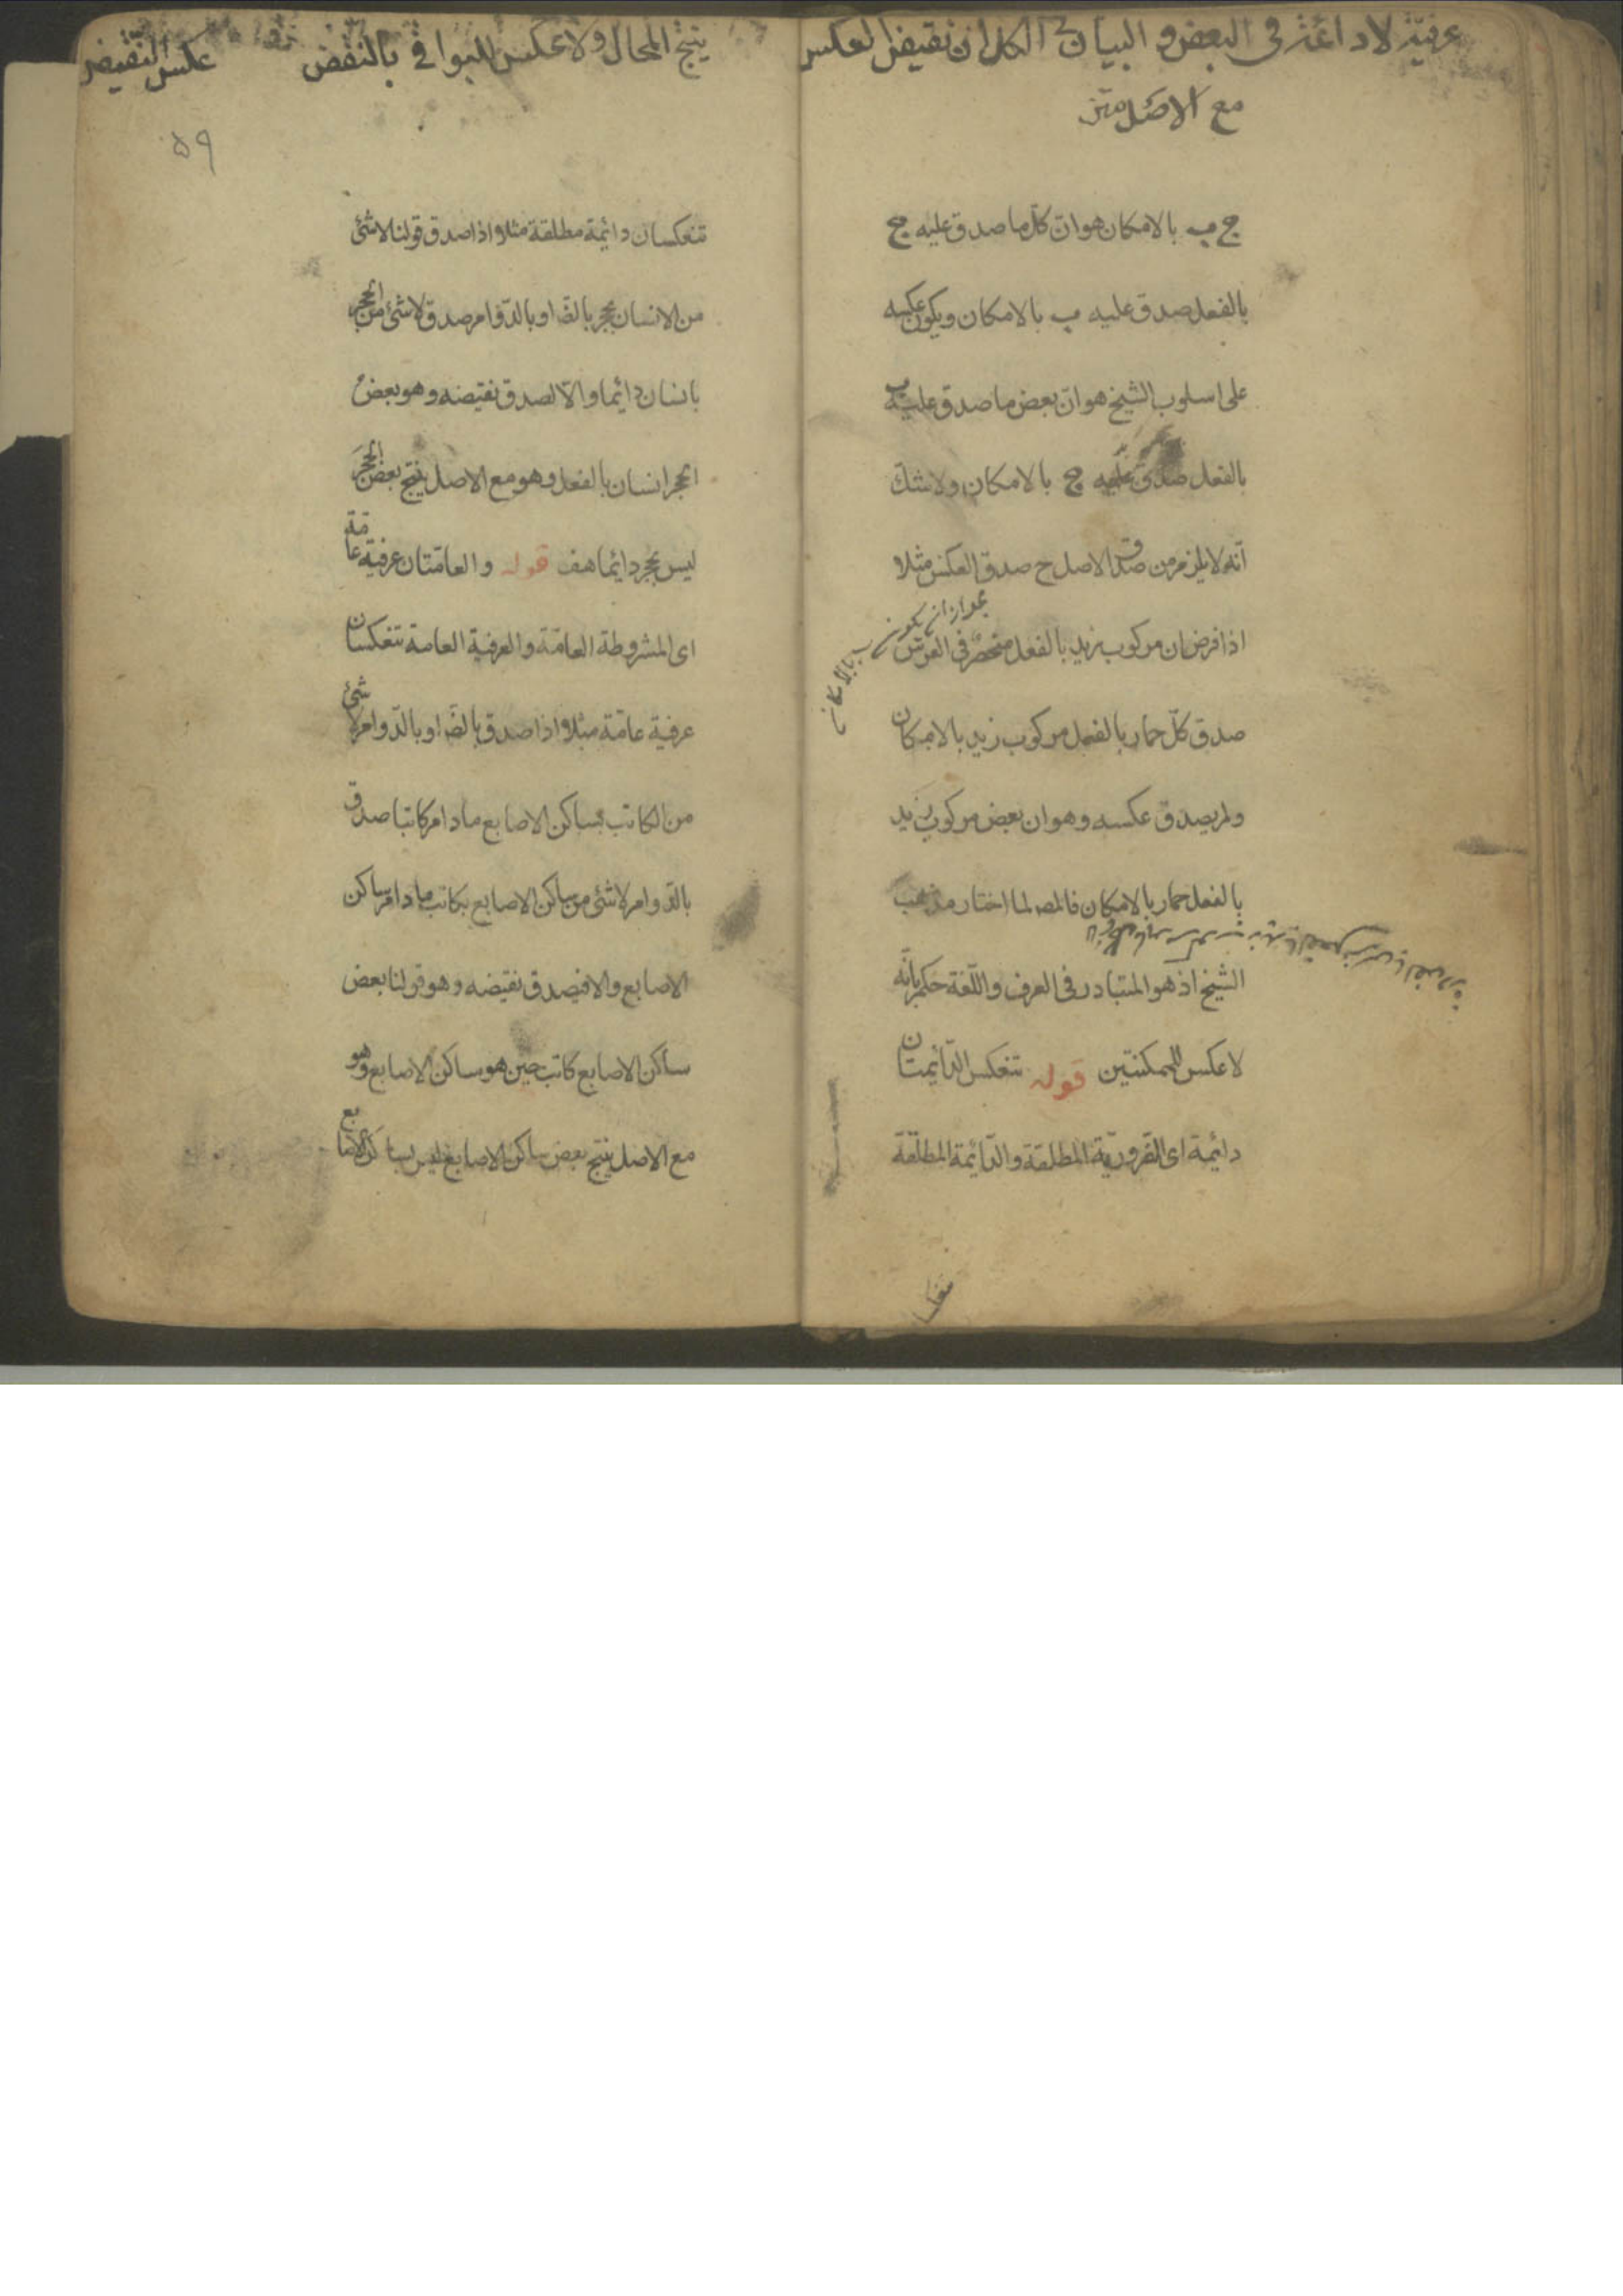 عرفیّة لادائمة فی البعض و البیان فی الکل ان نقیض العکس
مع الاصل متن
ج ب بالامکان هو ان کلّ ما صدق علیه ج
بالفعل صدق علیه ب بالامکان و یکون عکسه
علی اسلوب الشیخ هو ان بعض ما صدق علیه ب
بالفعل صدق علیه ج بالامکان ولاشک
انه لایلزم من صدق الاصل ح صدق العکس مثلا
اذا فرض ان مرکوب زید بالفعل منحصر فی الفرس
صدق کلّ حمار بالفعل مرکوب زید بالامکان
ولم یصدق عکسه و هو ان بعض مرکوب زید
بالفعل حمار بالامکان فالمصـ لما اختار مذهب
الشیخ اذ هو المتبادر فی العرف و اللّغة حکم بانّه
لا عکس للممکنتین قوله تنعکس الدّائمتان
دائمة ای الضّروریّة المطلقة و الدّائمة المطلقة
ینتج المحال و لا عکس للبواقی بالنقض
عکس النقیض
۵۹
تنعکسان دائمة مطلقة مثلا اذا صدق قولنا لا شئ
من الانسان بحجر بالضّـ او بالدّوام صدق لا شئ من الحجر
بانسان دائما و الّا لصدق نقیضه و هو بعض
الحجر انسان بالفعل و هو مع الاصل ینتج بعض الحجر
لیس بحجر دائما هف قوله و العامّتان عرفیة عامّة
ای المشروطة العامّة و العرفیة العامة تنعکسان
عرفیة عامّة مثلا اذا صدق بالضّـ او بالدّوام لا شئ
من الکاتب بساکن الاصابع مادام کاتبا صدق
بالدّوام لا شئ من ساکن الاصابع بکاتب مادام ساکن
الاصابع و الا فیصدق نقیضه و هو قولنا بعض
ساکن الاصابع کاتب حین هو ساکن الاصابع و هو
مع الاصل ینتج بعض ساکن الاصابع لیس بساکن الاصابع